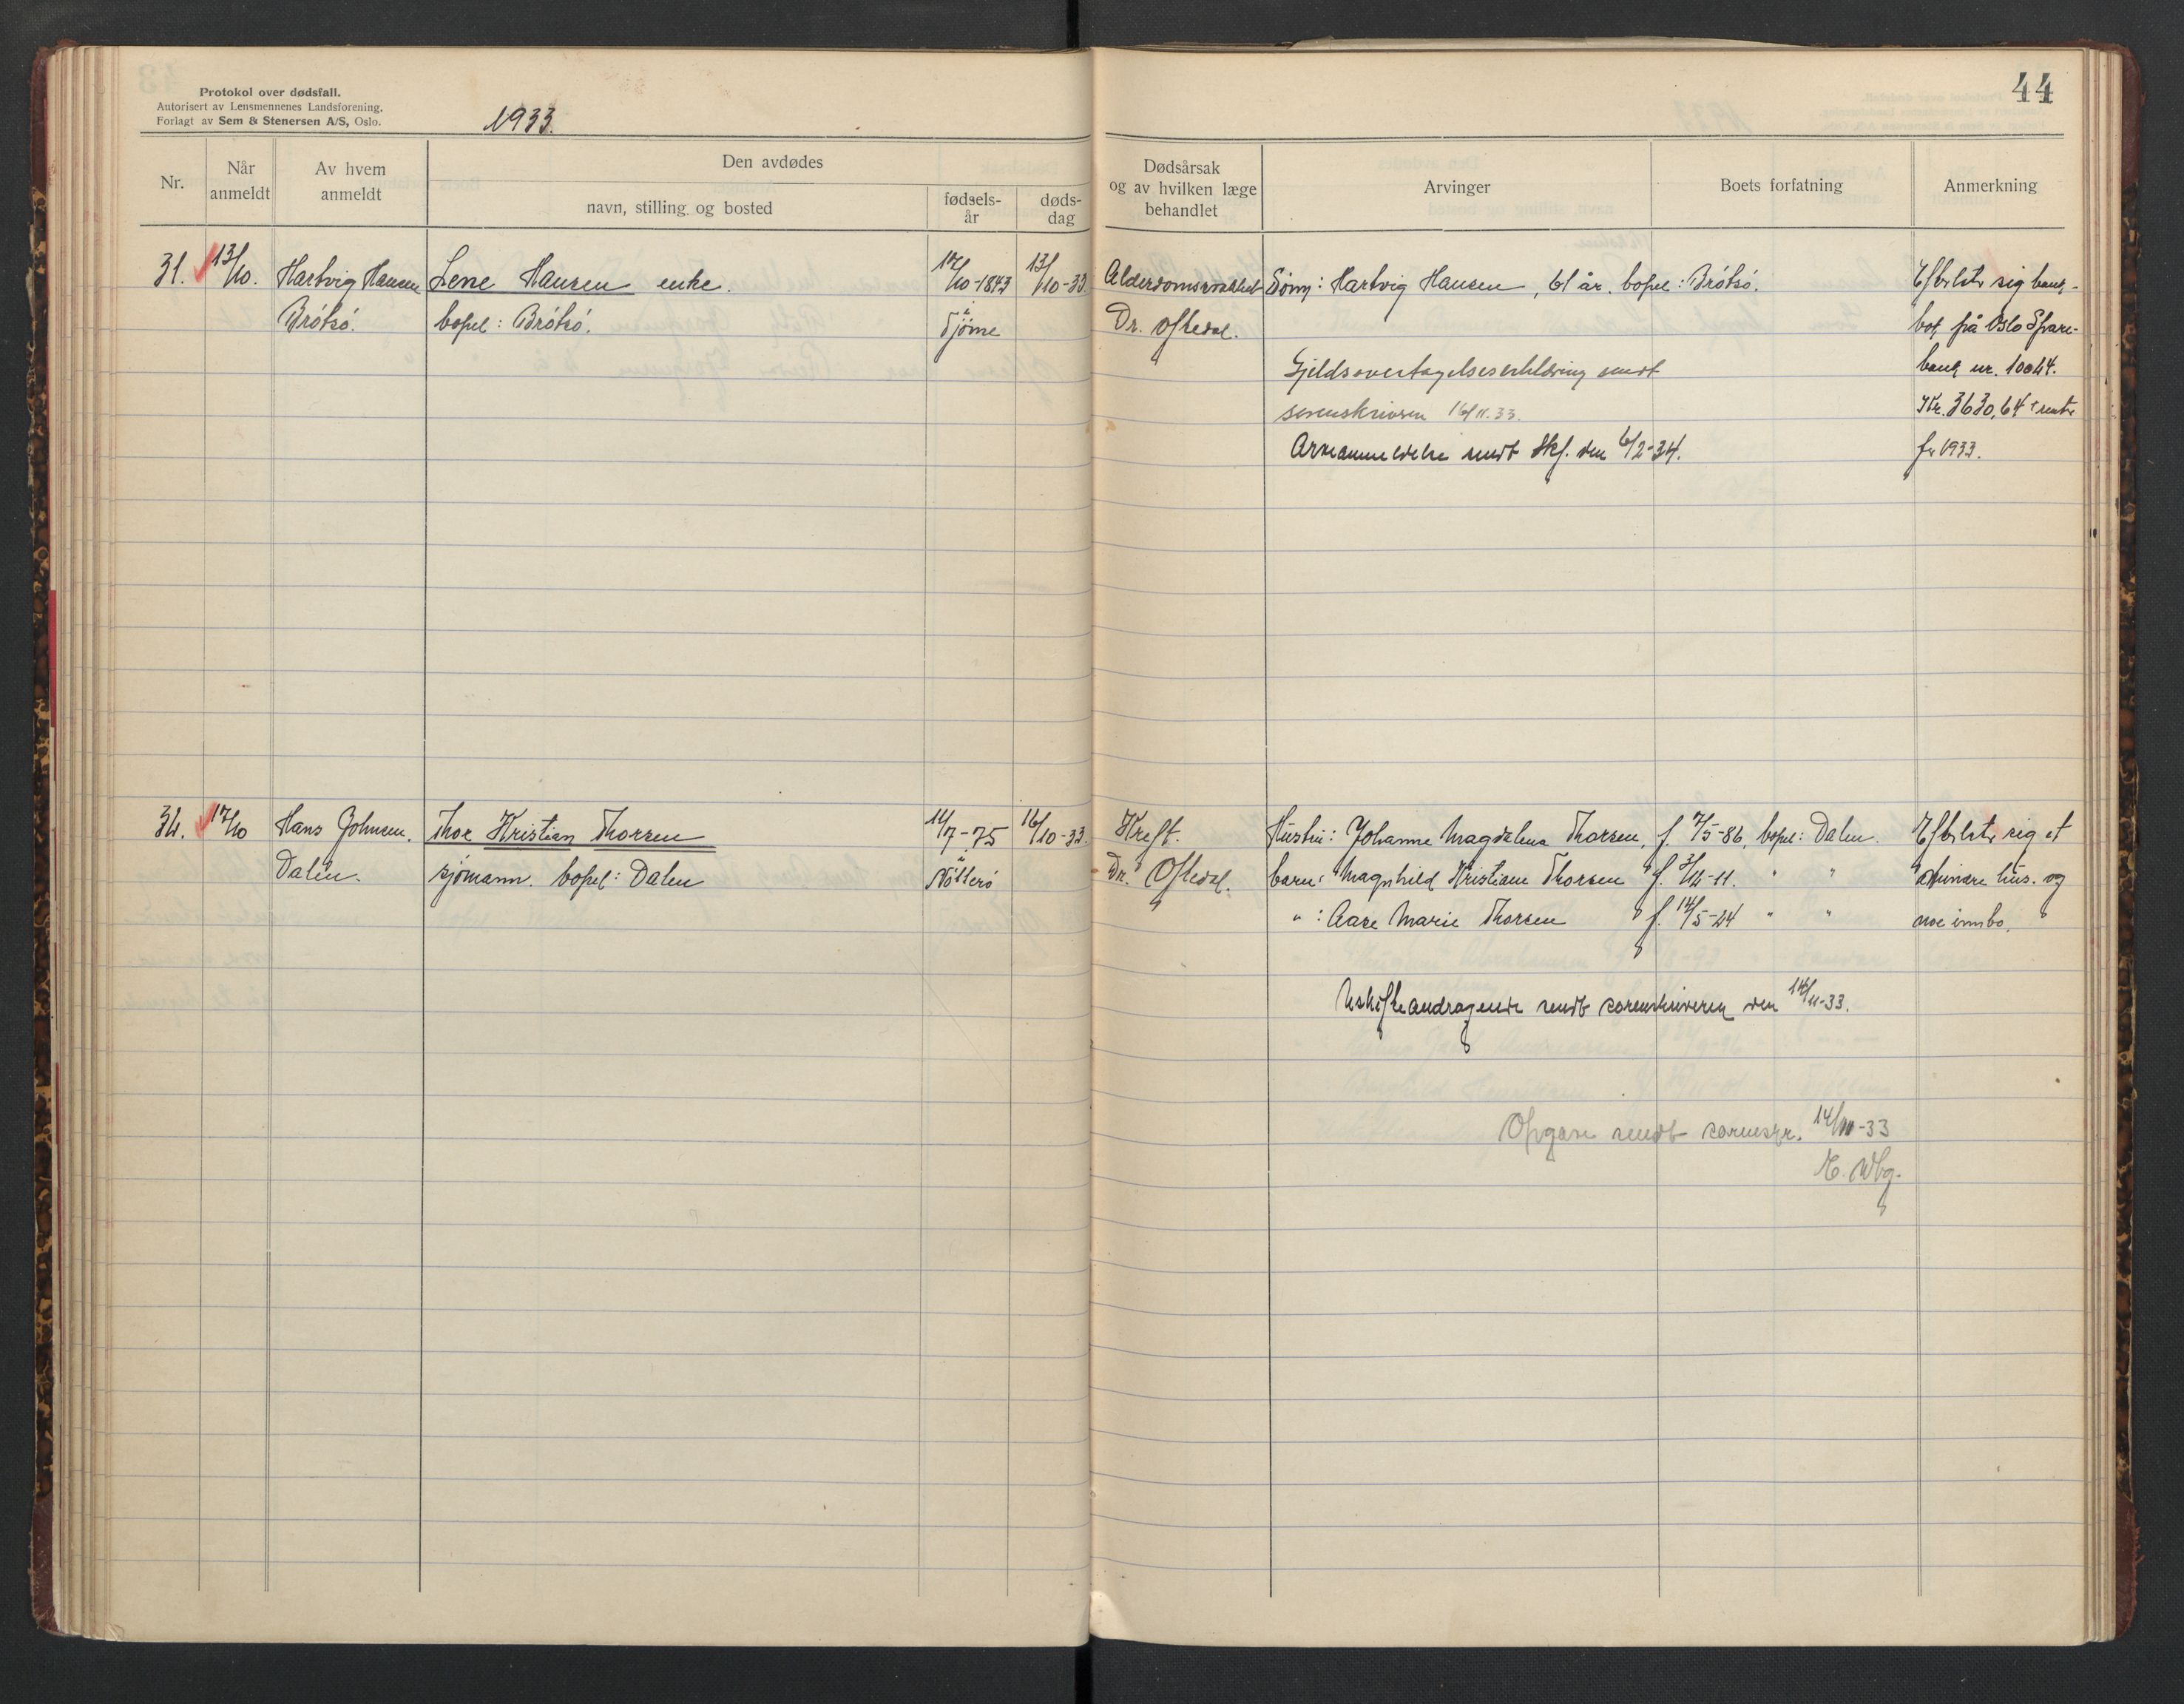 Protokol over dødsfall.
Autorisert av Lensmennenes Landsforening.
Forlagt av Sem & Stenersen A/S, Oslo.
1933.
44
Nr.
Når anmeldt
Av hvem anmeldt
Den avdødes
navn, stilling og bosted
fødsels-år
døds-dag
Dødsårsak og av hvilken læge behandlet
Arvinger
Boets forfatning
Anmerkning
31. 13/10. Hartvig Hansen Lene Hansen enke. 17/10-1843 13/10-33. Alderdomssvakhet Sönn: Hartvig Hansen, 61 år. bopel: Brötsö. Efterlater sig bank-
Brötsö. bopel: Brötsö. Tjöme Dr. Oftedal. bok på Oslo Spare-
Gjeldsovertagelseserklæring sendt bank nr. 10044.
sorenskriveren 16/11.33. Kr. 3630,64 + rente
Arveanmeldelse sendt Skf. den 6/2-34. for 1933.
32. 17/10 Hans Johnsen. Thor Kristian Thorsen 12/7-75 16/10-33. Kreft. Hustru: Johanne Magdalena Thorsen, f. 7/5-86, bopel: Dalen. Efterlater sig et
Dalen. sjömann. bopel: Dalen Nötterö Dr. Oftedal. barn: Magnhild Kristiane Thorsen f. 3/12-11. " " mindre hus og
" : Aase Marie Thorsen f. 14/5-24 " " noe innbo.
Uskifteandragende sendt sorenskriveren den 14/11-33.
Opgave sendt sorenskr. 14/11-33